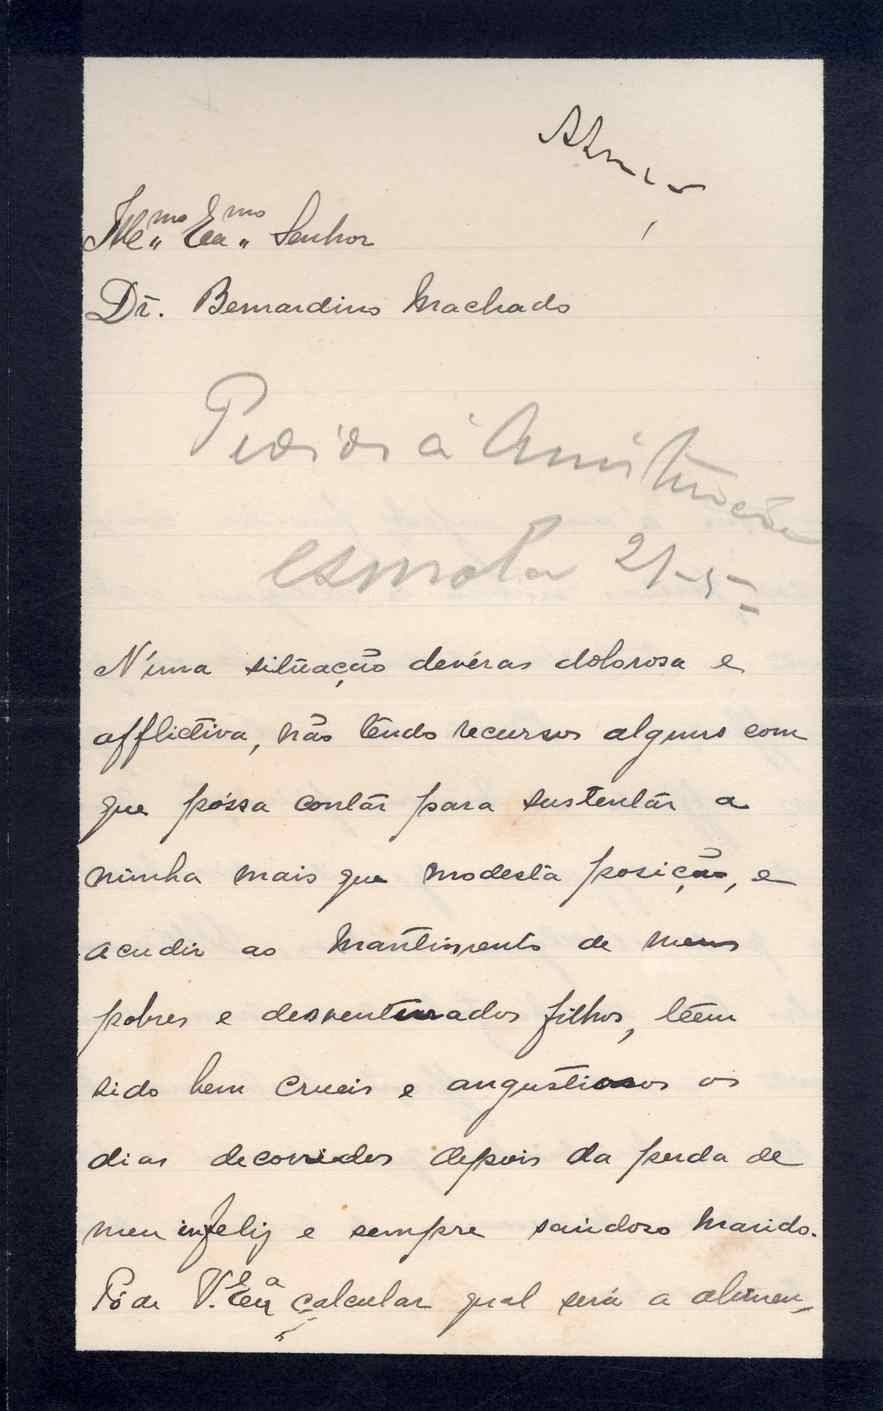 Illmo Exmo Senhor
Dr. Bernardino Machado
Pedidos á
esmola 21-5-
N'uma situação devéras dolorosa e
afflictiva, não tendo recursos alguns com
que póssa contár para sustentár a
minha mais que modesta posição, e
acudir ao mantimento de meus
pobres e desventurados filhos, têem
sido bem crueis e angustiosos os
dias decorridos depois da perda de
meu infeliz e sempre saudoso marido.
Póde V. Exa calcular qual será a alimen-